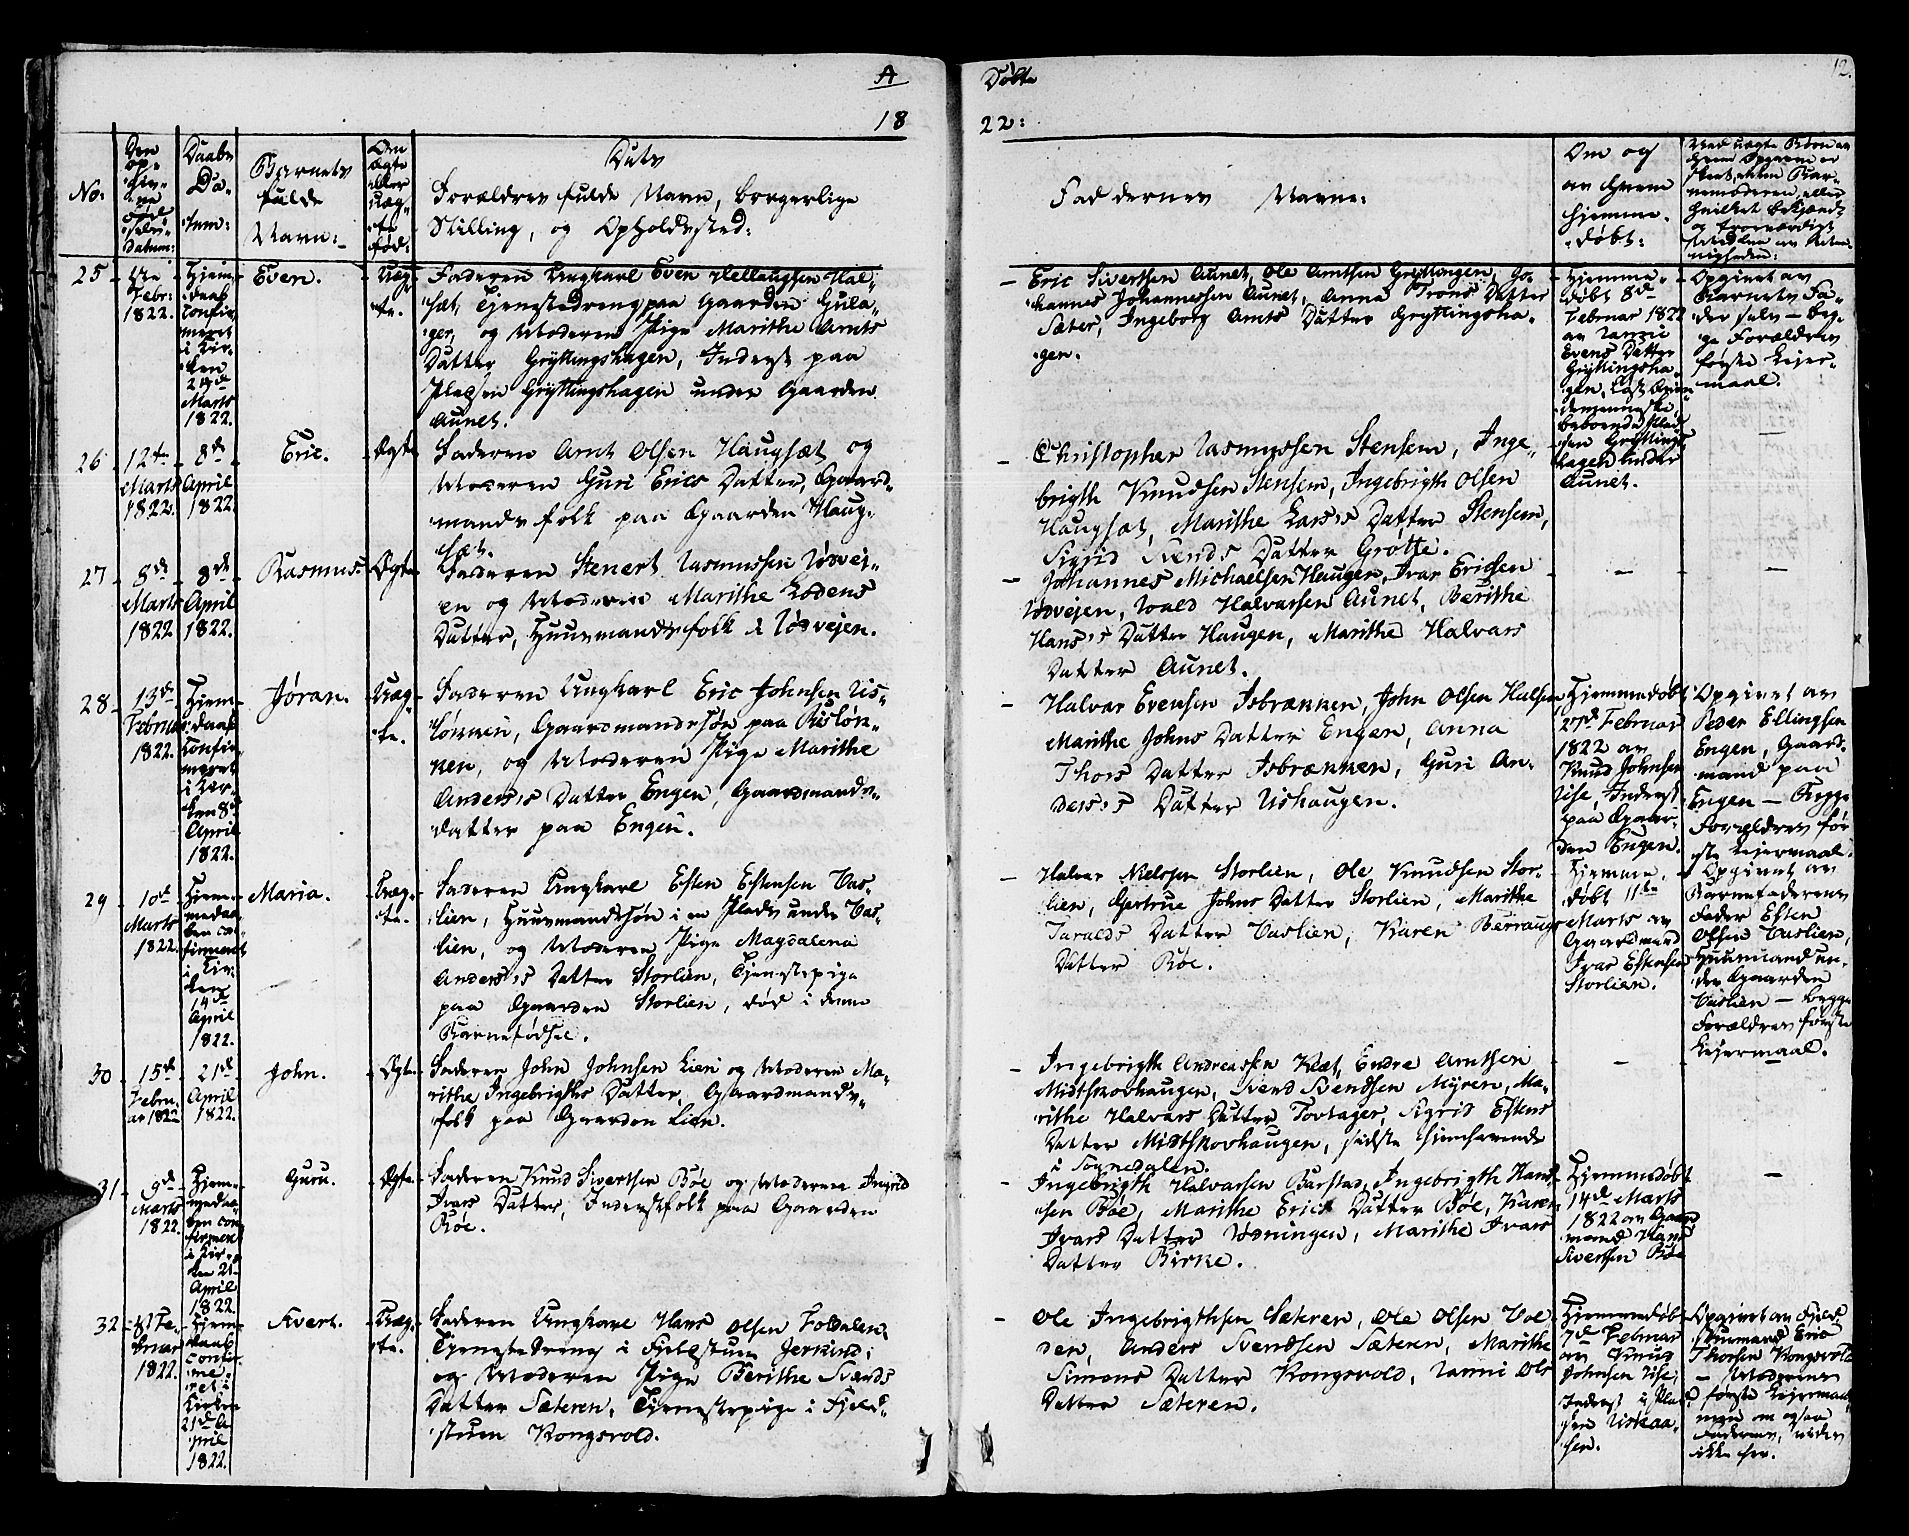 A
Døbte
12.
18
22:
No.
Den
op-
-giv-
-ne
Fød-
-sels-
Datum:
Daabs
Da-
-tum:
Barnets
fulde
Navn:
Om
Ægte
eller
Uæg-
-te
fød:
Dets
Forældres fulde Navn, borgerlige
Stilling, og Opholdssted:
Faddernes Navne:
Om og
av hvem
hjemme-
-døbt:
25
Febr:
1822.
Hjem-
-daab
confir-
meret
i Kir-
-ken
24de
Marts
1822.
Even.
Uæg-
-te.
Faderen Ungkarl Even Hellaugsen Hal-
-sæt, Tjenestedreng paa Gaarden Gula-
-ger, og Moderen Pige Marithe Arnts
Datter Gryttingshagen, Inderst paa
Pladsen Gryttingshagen under Gaarden
Aunet.
Eric Sivertsen Aunet, Ole Arntsen Gryttingen, Jo-
-hannes Johannessen Aunet, Anna Trons Datter
Sæter, Ingeborg Arnts Datter Gryttingsha-
-gen.
Hjemme-
døbt 8de
Februar 1822
av
Evens Datter
Gryttingsha-
-gen,
beboende Plad-
-sen Gryttings-
hagen under
Aunet.
Opgivet av
Barnets Fa-
der selv — Beg-
-ge Forældres
første Leier-
maal.
26
12te
Marts
1822.
8de
April
1822.
Eric.
Ægte
Faderen Arnt Olsen Haugsæt og
Moderen Guri Erics Datter, Gaard-
mandsfolk paa Gaarden Haug-
-sæt.
Christopher Rasmussen Stensem, Inge-
brigth Knudsen Stensem, Ingebrigth Olsen
Haugsæt, Marithe Lars's Datter Stensem,
Sigrid Svends Datter Grøtte.
—
27
8de
Marts
1822
8de
April
1822.
Rasmus.
Ægte
Faderen Stenert Rasmussen Røsvej-
en og Moderen Marithe Lodens
Datter, Huusmandsfolk i Røsvejen.
Johannes Michaelsen Haugen, Ivar Ericsen
Røsvejen, Roald Halvorsen Aunet, Berithe
Hans's Datter Haugen, Marithe Halvors
Datter Aunet.
—
—
28
13de
Februar
1822.
Hjem-
-daab
confir-
meret
i Kir-
ken 8de
April
1822.
Jøran.
Uæg-
-te.
Faderen Ungkarl Eric Johnsen Ris-
-lønnen, Gaardmandssøn paa Risløn-
nen, og Moderen Pige Marithe
Anders's Datter Engen, Gaardmands-
datter paa Engen.
Halvor Evensen Isbrækken, John Olsen Halsen
Marithe Johns Datter Engen, Anna
Thors Datter Isbrækken, Guri An-
ders's Datter Rishaugen.
Hjemmedøbt
27de Februar
1822 av
Knud Johnsen
Rise, Inderst
paa Gaar-
den Engen.
Opgivet av
Peder Ellingsen
Engen, Gaard-
mand paa
Engen — Begge
Forældres før-
ste Leiermaal.
29
10de
Marts
1822.
Hjem-
medaa-
ben con-
firmeret
i Kir-
ken
14de
April
1822.
Maria.
Uæg-
-te.
Faderen Ungkarl Esten Estensen Vas-
-lien, Huusmandssøn i en Plads under Vas-
-lien, og Moderen Pige Magdalena
Anders's Datter Storlien, Tjenestepige
paa Gaarden Storlien, død i denne
Barnefødsel.
Halvor Nielsen Storlien, Ole Knudsen Stor-
lien, Gertrue Johns Datter Storlien, Marithe
Taralds Datter Vaslien, Karen Berraugs
Datter Bøe.
Hjemme-
døbt 11te
Marts av
Gaardmand
Ivar Estensen
Storlien.
Opgivet av
Barnefaderens
Fader Esten
Olsen Vaslien,
Huusmand un-
der Gaarden
Vaslien — begge
Forældres første
Leiermaal.
30
15de
Febru-
ar 1822
21de
April
1822.
John.
Ægte
Faderen John Johnsen Lien og Moderen Ma-
rithe Ingebrigths Datter, Gaardmands-
-folk paa Gaarden Lien.
Ingebrigth Andreassen Klæt, Endre Arntsen
Midtskovhaugen, Svend Svendsen Myren, Ma-
rithe Halvors Datter Tovtager, Sigrid Estens
Datter Midtskovhaugen, sidste hjemhørende
i Sognedalen.
—
31
9de
Marts
1822.
Hjem-
medaa-
ben con-
firmert
i Kir-
ken 21
April
1822.
Guru.
Ægte
Faderen Knud Sivertsen Bøe og Moderen Ingrid
Ivars Datter, Inderstfolk paa Gaarden
Bøe.
Ingebrigth Halvorsen Barstad, Ingebrigth Hans-
-sen Bøe, Marithe Erics Datter Bøe, Karen
Ivars Datter Røsningen, Marithe Ivars
Datter Birke.
Hjemmedøbt
14de Marts
1822 av Gaard-
mand Hans
Sivertsen Bøe
—
32
8de Fe-
bruar
1822.
Hjem-
daab
confir-
me-
ret i
Kirken
21de A-
pril
1822.
Sivert.
Uæg-
-te.
Faderen Ungkarl Hans Olsen Foldalen,
Tjenestedreng i Fjeldstuen Jerkind,
og Moderen Pige Berithe Svends
Datter Sæteren, Tjenestepige i Fjeld-
stuen Kongsvold.
Ole Ingebrigthsen Sæteren, Ole Olsen Vol-
den, Anders Svendsen Sæteren, Marithe
Simons Datter Kongsvold, Ols
Datter Sæteren.
Hjemmedøbt
7de Februar
av Knud
Johnsen Rise,
Inderst i Pla-
sen Riskaa-
sen.
Opgivet av Fjeld-
stuemand Eric
Thorsen Kongsvold
— Moderens
første Leiermaal,
men om ogsaa
Faderens, vides
ikke her.